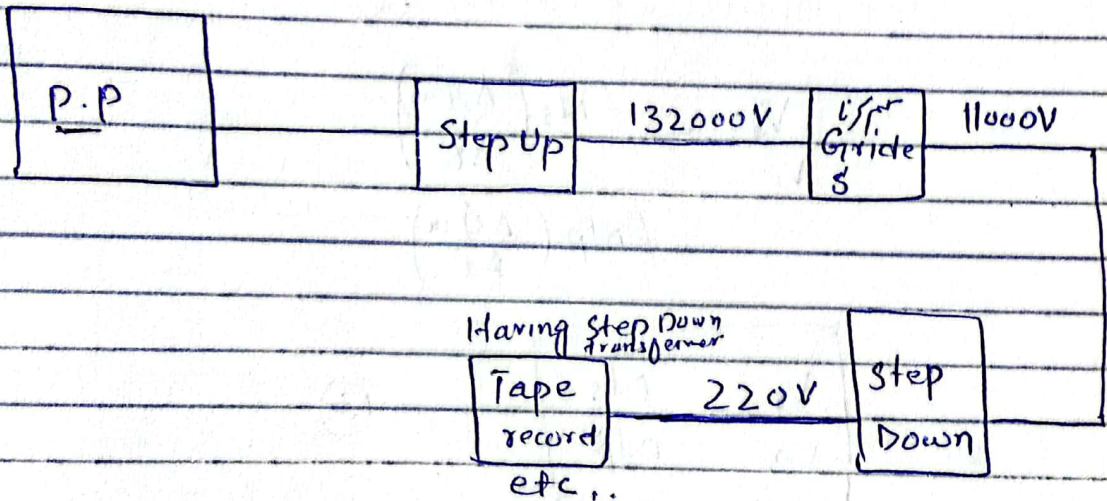 P.P
Step Up
132000V
Gride
S
11000V
Having Step Down
transformer
Tape
record
etc..
220V
Step
Down